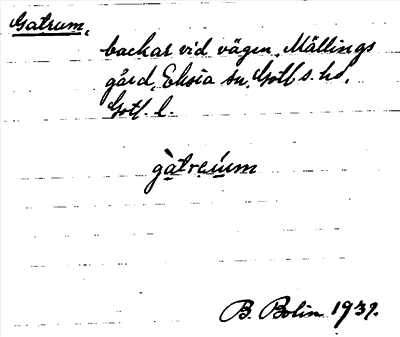 Gatrum,
backar vid vägen, Mällings
gård, Eksta sn, Gotl s. hd,
Gotl. l.
gàtreùm
B. Bolin 1939.